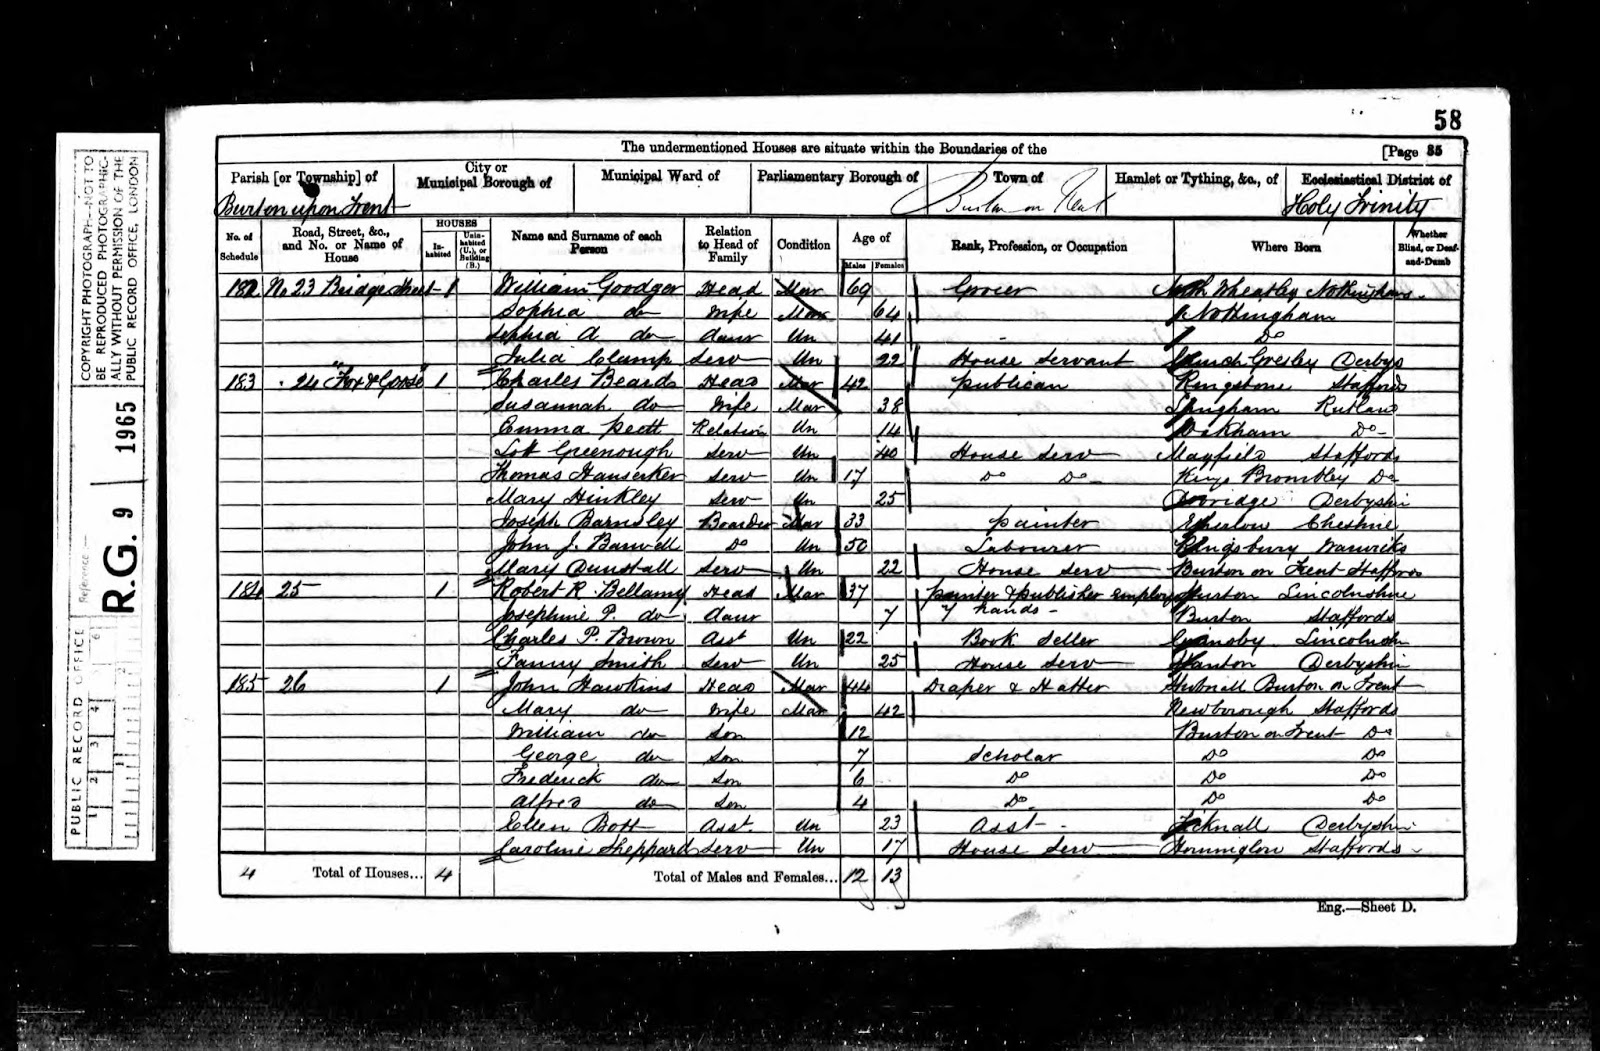 58
The undermentioned Houses are situate within the Boundaries of the [Page 35
Parish [or Township] of City or Municipal Borough of Municipal Ward of Parliamentary Borough of Town of Hamlet or Tything, &c., of Ecclesiastical District of
Burton upon Trent Burton on Trent Holy Trinity
No. of Schedule Road, Street, &c., and No. or Name of House HOUSES In-habited Unin-habited (U.), or Building (B.) Name and Surname of each Person Relation to Head of Family Condition Age of Males Females Rank, Profession, or Occupation Where Born Whether Blind, or Deaf-and-Dumb
182 No 23 Bridge Street 1 William Goodger Head Mar 69 Grocer North Wheatley Nottinghams
Sophia do Wife Mar 64 Nottingham
Sophia A do Daur Un 41 Do
Julia Clamp Serv Un 22 House Servant Church Gresley Derbys
183 24 "Fox & Goose" 1 Charles Beard Head Mar 42 Publican Kingstone Staffords
Susannah do Wife Mar 38 Rutland
Emma Relation Un 14 Oakham Do
Greenough Serv Un 40 House Serv Mayfield Staffords
Thomas Serv Un 17 Do Do Kings Bromley Do
Mary Hinkley Serv Un 25 Derbyshire
Joseph Barnsley Boarder Mar 33 Painter Cheshire
John J. Do Un 50 Labourer Kingsbury Warwicks
Mary Dunstall Serv Un 22 House Serv Burton on Trent Staffords
184 25 1 Robert R. Bellamy Head Mar 37 Printer & Publisher employ Lincolnshire
Josephine P. do Daur 7 7 hands Burton Staffords
Charles P. Brown Asst Un 22 Book Seller Grimsby Lincolnsh
Fanny Smith Serv Un 25 House Serv Stanton Derbyshire
185 26 1 John Hawkins Head Mar 44 Draper & Hatter Burton on Trent
Mary do Wife Mar 42 Newborough Staffords
William do Son 12 Burton on Trent Do
George do Son 7 Scholar Do Do
Frederick do Son 6 Do Do Do
Alfred do Son 4 Do Do Do
Ellen Bott Asst. Un 23 Asst Ticknall Derbyshire
Caroline Sheppard Serv Un 17 House Serv Horninglow Staffords
4 Total of Houses... 4 Total of Males and Females... 12 13
Eng.—Sheet D.
PUBLIC RECORD OFFICE
Reference:—
1 2 3 4 5 6
R.G. 9 1965
COPYRIGHT PHOTOGRAPH—NOT TO
BE REPRODUCED PHOTOGRAPHIC-
ALLY WITHOUT PERMISSION OF THE
PUBLIC RECORD OFFICE, LONDON